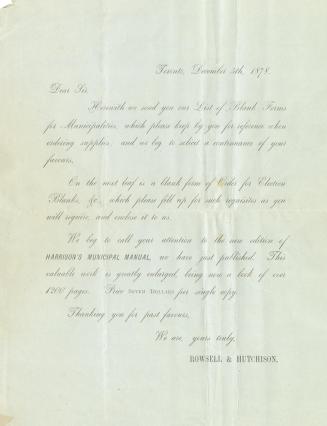 Toronto, December 5th, 1878.
Dear Sir,
Herewith we send you our List of Blank Forms
for Municipalities, which please keep by you for reference when
ordering supplies, and we beg to solicit a continuance of your
favours.
On the next leaf is a blank form of Order for Election
Blanks, &c., which please fill up for such requisites as you
will require, and enclose it to us.
We beg to call your attention to the new edition of
HARRISON'S MUNICIPAL MANUAL, we have just published. This
valuable work is greatly enlarged, being now a book of over
1200 pages. Price SEVEN DOLLARS per single copy.
Thanking you for past favours,
We are, yours truly,
ROWSELL & HUTCHISON.